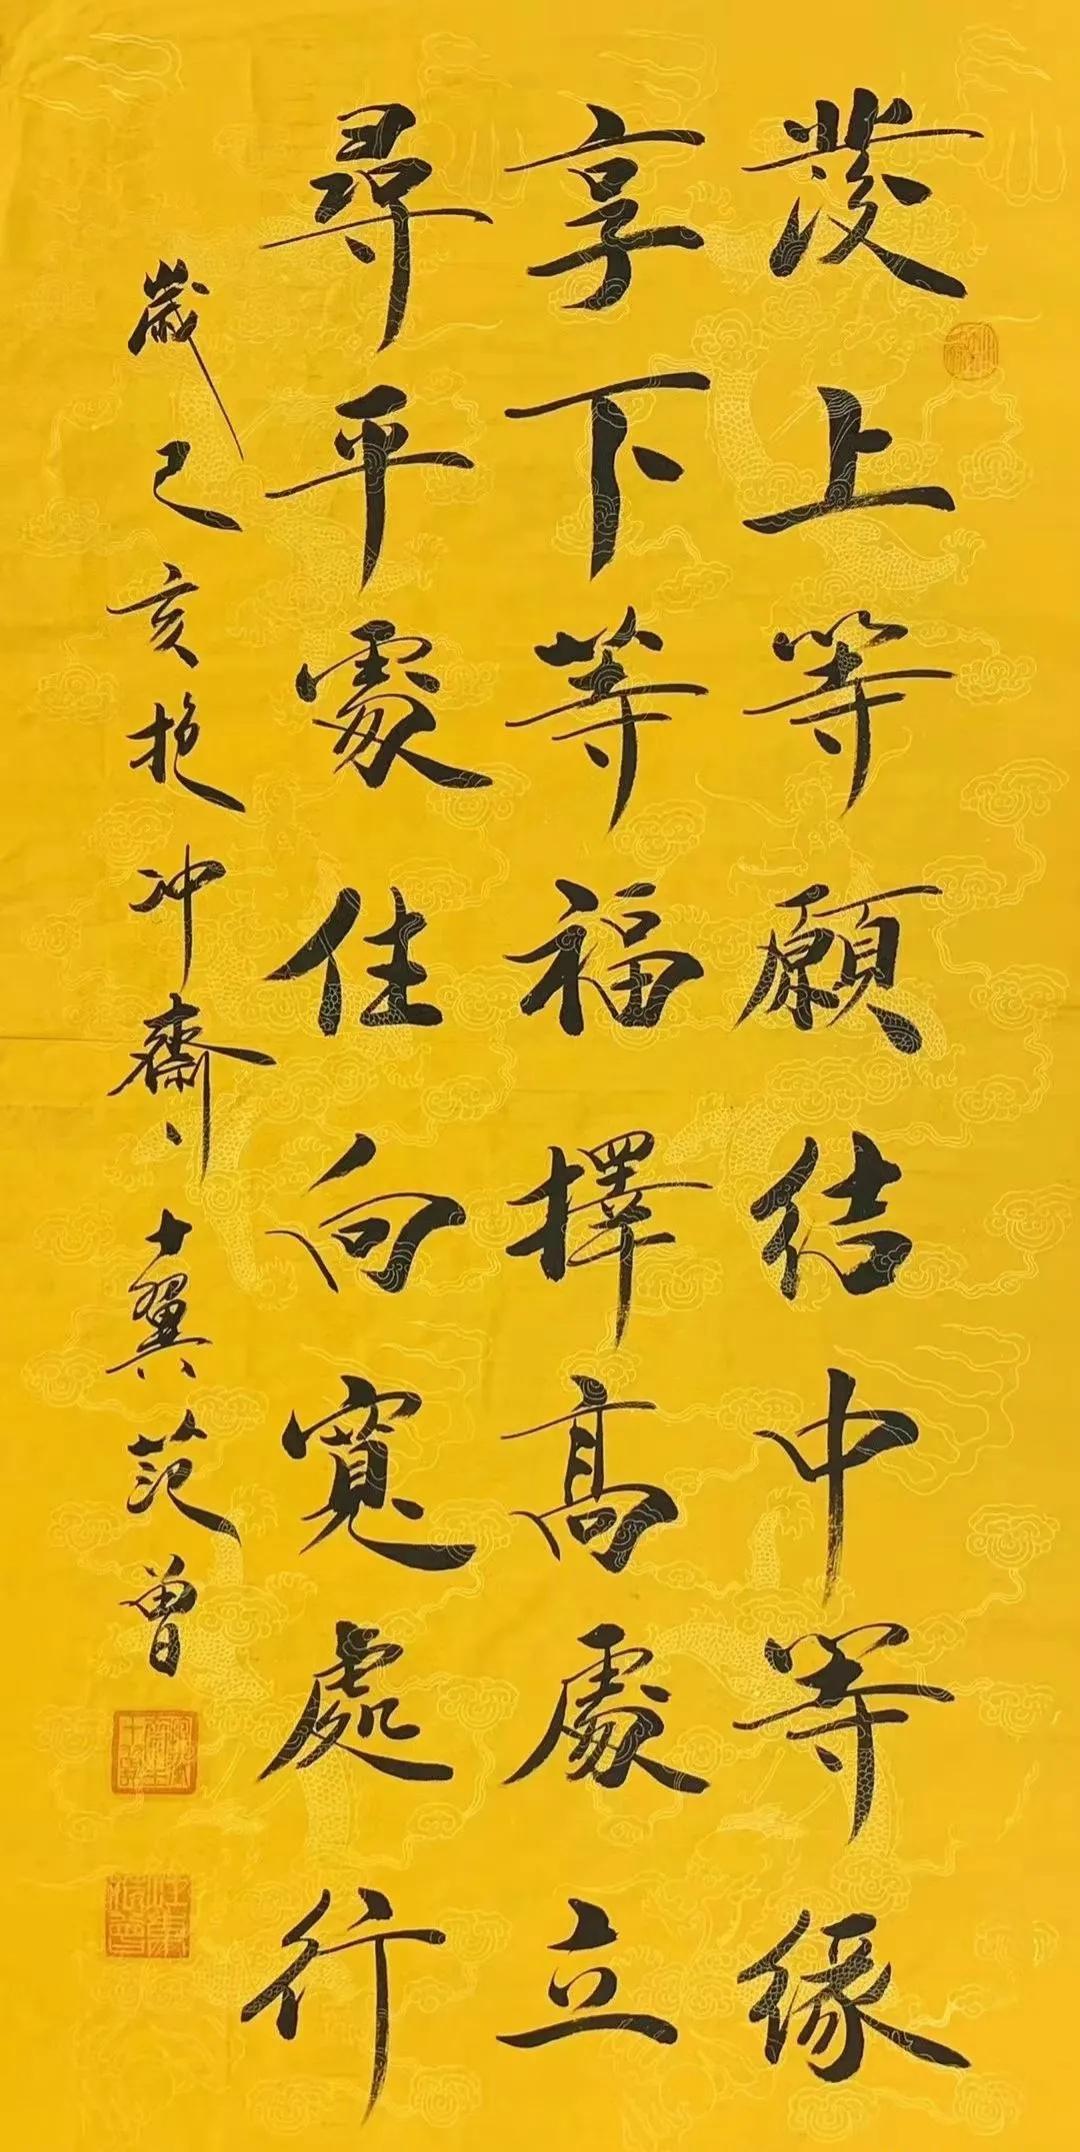 发上等願结中等缘
享下等福擇高處立
尋平處住向寬處行
歲己亥抱冲齋十翼范曾